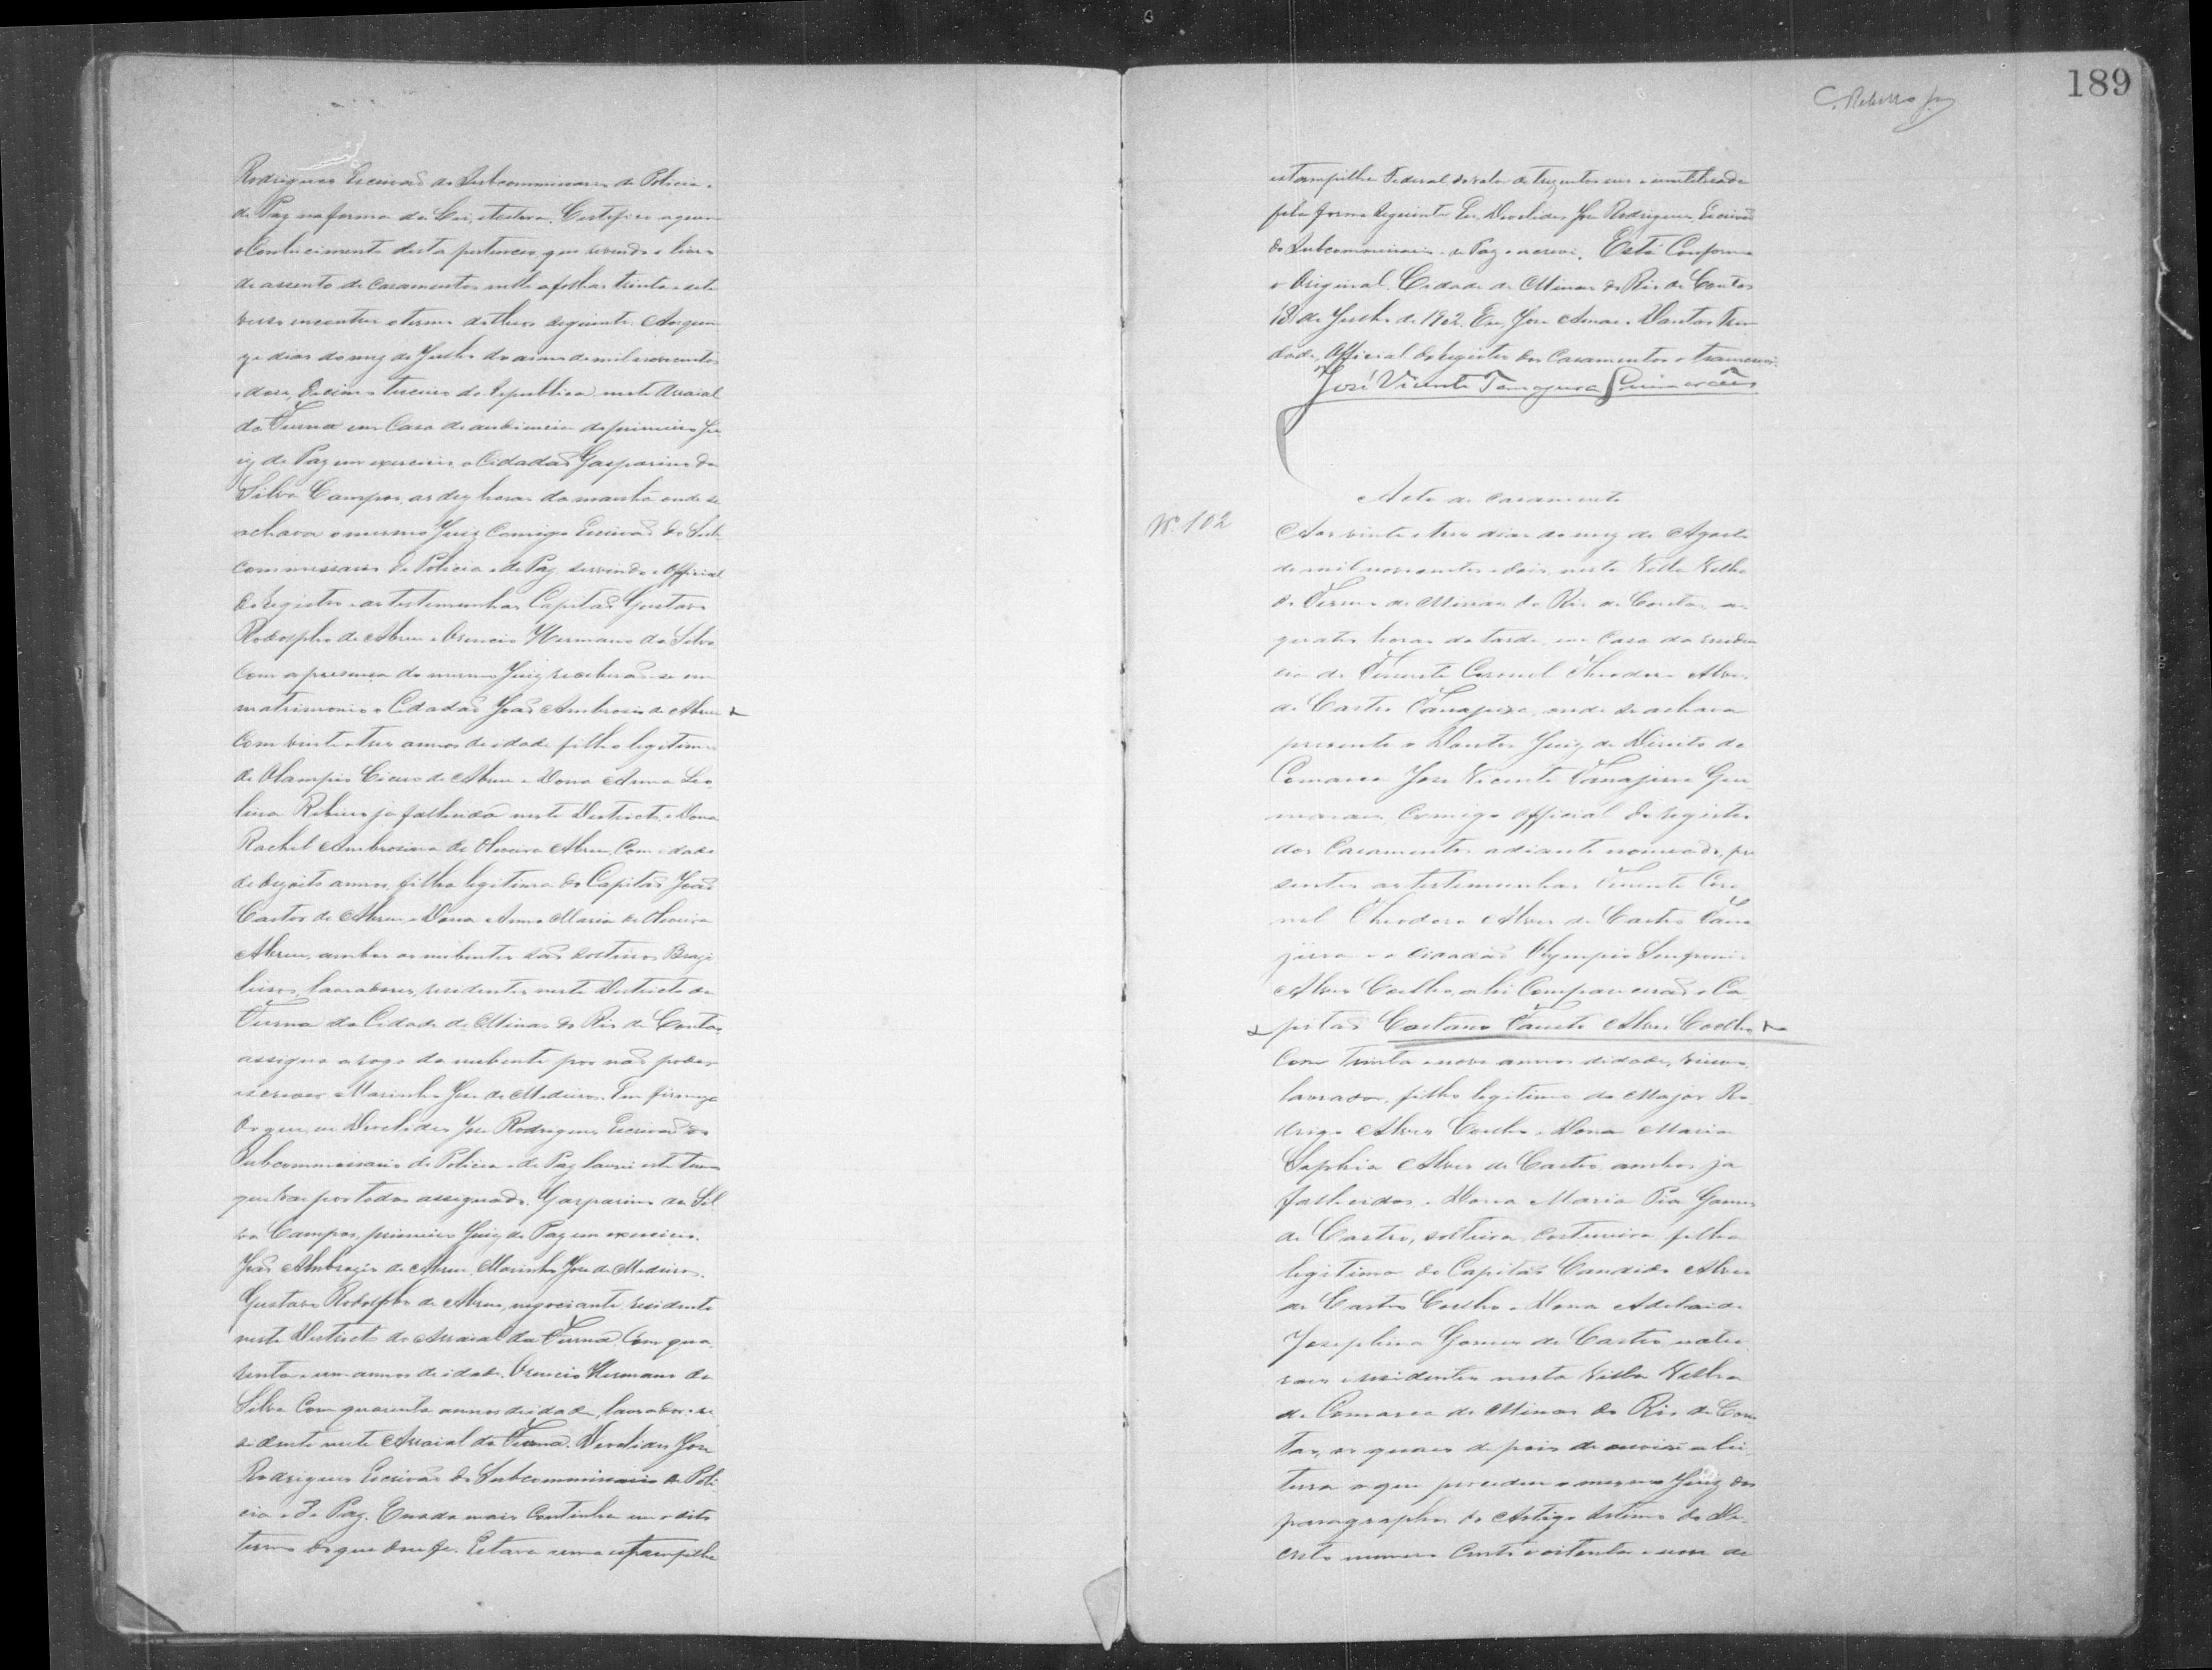 Rodrigues Escrivão do Subcommissario de Policia e
de Paz na forma da Lei, etcetera. Certifico a quem
o Conhecimento desta pertencer que revendo o livro
de assento de Casamentos nelle a folhas trinta e sete
verso encontrei o termo do theor seguinte: Aos quin
ze dias do mez de Julho do anno de mil novecentos
e dois, Decimo terceiro da Republica neste Arraial
da Furna em Casa de audiencia do primeiro Ju
iz de Paz em exercicio o Cidadão Gasparino da
Silva Campos, as dez horas da manhã onde se
achava o mesmo Juiz Comigo Escrivão do Sub
commissario de Policia e de Paz servindo o Official
do registro e as testemunhas Capitão Gustavo
Rodolpho de Abreu e Orencio Hermano da Silva
Com a presença do mesmo Juiz receberão-se em
matrimonio o Cidadão João Ambrosio de Abreu
Com vinte e tres annos de idade filho legitimo
de Olampio Cicero de Abreu e Dona Anna Leo
lina Ribeiro ja fallecida neste Districto, e Dona
Rachel Ambrosina de Oliveira Abreu, Com idade
de dezoito annos, filha legitima do Capitão João
Castor de Abreu e Dona Anna Maria de Oliveira
Abreu, ambos os nubentes são solteiros Brazi
leiros, lavradores, residentes neste Districto da
Furna da Cidade de Minas do Rio de Contas
assigna a rogo da nubente por não poder
escrever Marinho Jose de Medeiros. Em firmeza
do que, eu Deoclides Jose Rodrigues Escrivão do
Subcommissario de Policia e de Paz lavrei este termo
que vae por todos assignado. Gasparino da Sil
va Campos, primeiro Juiz de Paz em exercicio.
João Ambrozio de Abreu. Marinho Jose de Medeiros.
Gustavo Rodolpho de Abreu, negociante, residente
neste Districto do Arraial da Furna Com qua
renta e um annos de idade. Orencio Hermano da
Silva Com quarenta annos de idade, lavrador, re
sidente neste Arraial da Furna. Deoclides Jose
Rodrigues Escrivão do Subcommissario de Poli
cia e de Paz. E nada mais Continha em o dito
termo do que dou fe. Estava uma estampilha
189
estampilha Federal do valor de trezentos reis e inutilisada
pela forma seguinte Eu, Deoclides Jose Rodrigues, Escrivão
do Subcommissario e de Paz o escrevi. Está Conforme
o Original. Cidade de Minas do Rio de Contas
18 de Julho de 1902. Eu, Jose Dantas Trin
dade, Official do registro dos Casamentos o transcrevi.
José Vicente Tanajura Guimarães
Acto de casamento
N. 102
Aos vinte e tres dias do mez de Agosto
de mil novecentos e dois, nesta Villa Velha
do Termo de Minas do Rio de Contas, as
quatro horas da tarde, em Casa da residen
cia do Tenente Coronel Theodoro Alves
de Castro Tanajura, onde se achava
presente o Doutor Juiz de Direito da
Comarca Jose Vicente Tanajura Gui
maraes, Comigo Official do registro
dos Casamentos adiante nomeado, pre
sentes as testemunhas Tenente Coro
nel Theodoro Alves de Castro Tana
jura e o cidadão Olympio Simpronio
Alves Coelho, ahi Comparecerão o Ca
pitão Caetano Fausto Alves Coelho
Com trinta e nove annos de idade, viuvo,
lavrador, filho legitimo do Major Ro
drigo Alves Coelho e Dona Maria
Sophia Alves de Castro, ambos ja
fallecidos e Dona Maria Pia Gomes
de Castro, solteira, Costureira, filha
legitima do Capitão Candido Alves
de Castro Coelho e Dona Adelaide
Josephina Gomes de Castro, natu
raes e residentes nesta Villa Velha
da Comarca de Minas do Rio de Con
tas, os quaes depois de ouvirem a lei
tura a que procedeu o mesmo Juiz dos
paragraphos do Artigo setimo do De
creto numero Cento e oitenta e um de